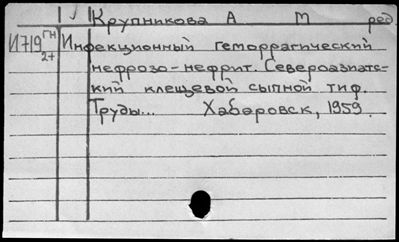 Крупникова А М ред.
И719 ГН 2+ Инфекционный геморрагический
нефрозо-нефрит. Североазиатс-
кий клещевой сыпной тиф.
Труды... Хабаровск, 1959.